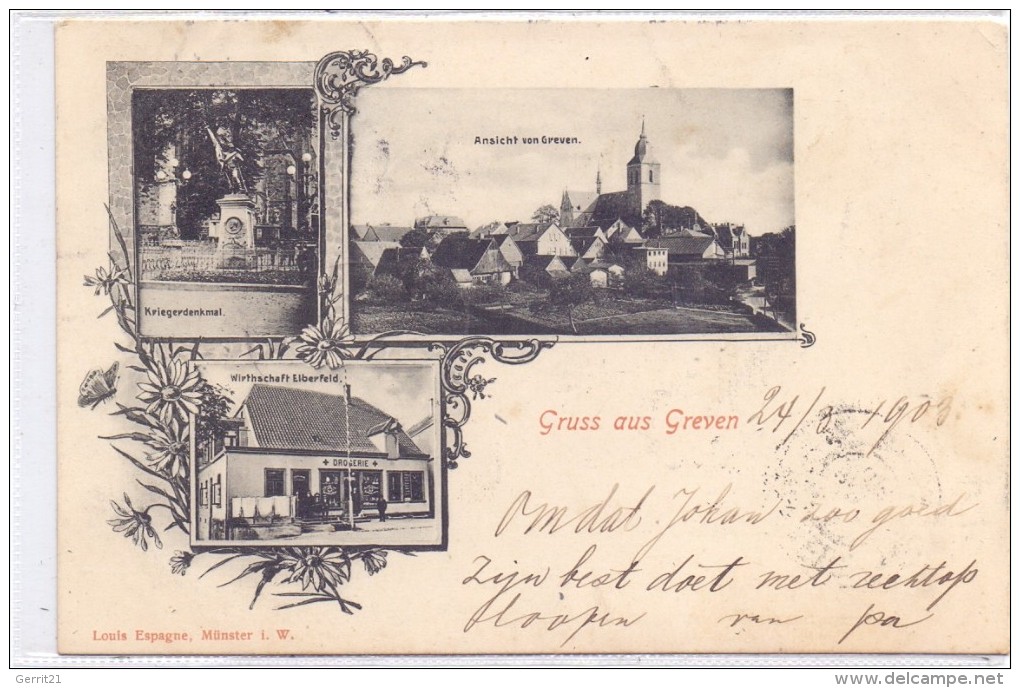 Ansicht von Greven.
Kriegerdenkmal.
Wirthschaft Elberfeld.
+ DROGERIE +
Gruss aus Greven 24/ 1903
Omdat Johan zoo goed
Zijn best doet met rechtop
loopen van pa
Louis Espagne, Münster i. W.
Gerrit21
delcampe.net